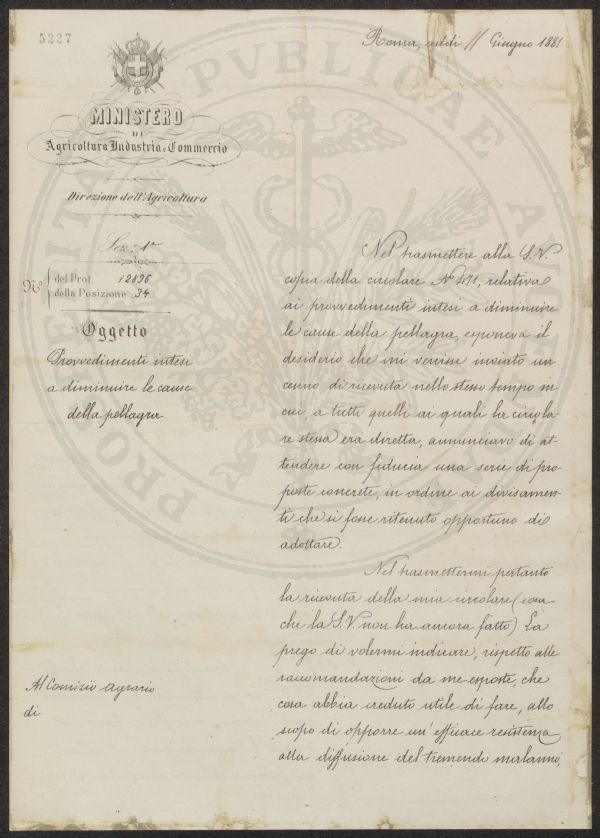 5227
Roma, addì 11 Giugno 1881
MINISTERO
DI
Agricoltura Industria e Commercio
Direzione dell'Agricoltura
Sez: 1ª
Nº del Prot. 12896
della Posizione 34
Oggetto
Provvedimenti intesi
a diminuire le cause
della pellagra
Nel trasmettere alla S.V.
copia della circolare Nº 471, relativa
ai provvedimenti intesi a diminuire
le cause della pellagra, esponeva il
desiderio che mi venisse inviato un
cenno di ricevuta nello stesso tempo in
cui, a tutti quelli ai quali la circola-
re stessa era diretta, annunciavo di at-
tendere con fiducia una serie di pro-
poste concrete, in ordine ai divisamen-
ti che si fosse ritenuto opportuno di
adottare.
Nel trasmettermi pertanto
la ricevuta della mia circolare
che la S.V. non ha ancora fatto) La
prego di volermi indicare, rispetto alle
raccomandazioni da me esposte, che
cosa abbia creduto utile di fare, allo
scopo di opporre un'efficace resistenza
alla diffusione del tremendo malanno,
Al Comizio Agrario
di
PVBLICAE